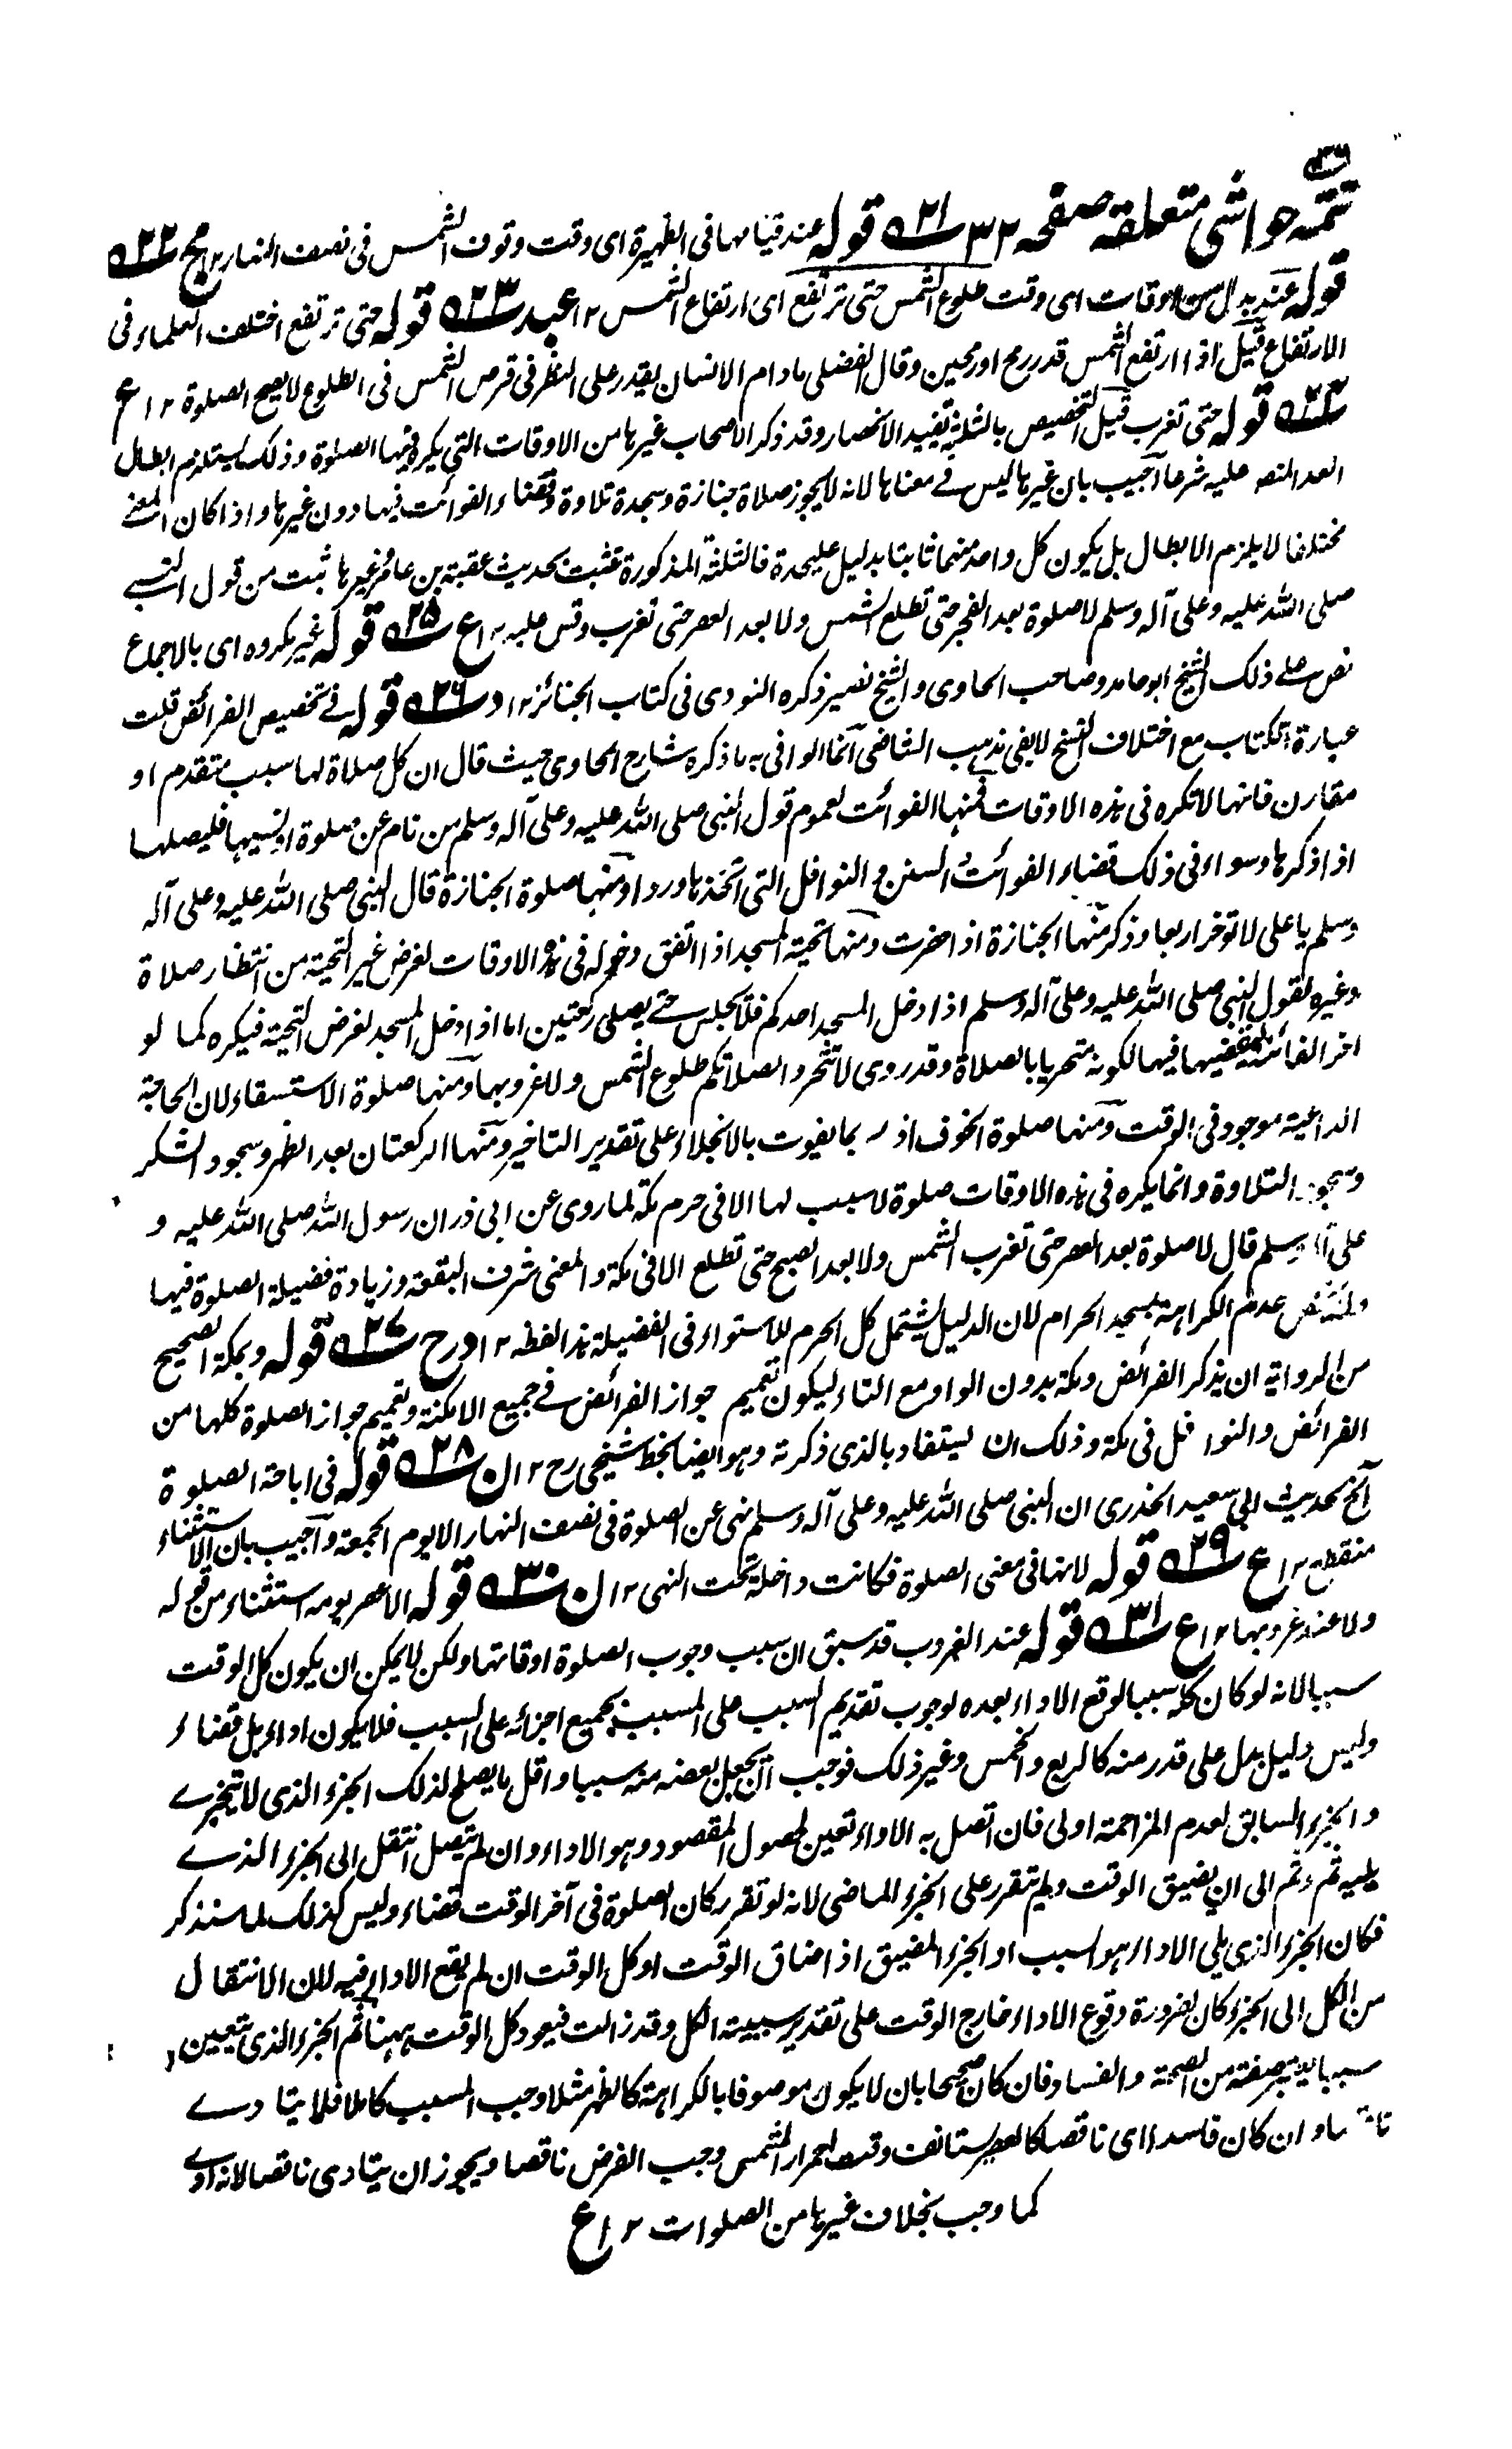 تتمہ حواشی متعلقہ صفحہ ٣٢ ٢١ قولہ عند قیامہا فی الظہیرۃ ای وقت وقوف الشمس فی نصف النہار ١٢ مج ٢٢
قولہ عند بدل من اوقات ای وقت طلوع الشمس حتی ترتفع ای ارتفاع الشمس ١٢ عبد ٢٣ قولہ حتی ترتفع اختلف العلماء فی
الارتفاع قیل اذا ارتفع الشمس قدر رمح او رمحین وقال الفضلی مادام الانسان یقدر علی النظر فی قرص الشمس فی الطلوع لا یصح الصلوۃ ١٢ ع
٢٤ قولہ حتی تغرب قیل التخصیص بالثلثۃ تفید الانحصار وقد ذکر الاصحاب غیرہا من الاوقات التی یکرہ فیہا الصلوۃ وذلک یستلزم ابطال
العدد المنصـ علیہ شرعا اجیب بان غیرہا لیس فے معناہا لانہ لا یجوز صلاۃ جنازۃ وسجدۃ تلاوۃ وقضاء الفوائت فیہا دون غیرہا واذا کان المعنے
مختلفا لا یلزم الابطال بل یکون کل واحد منہما ثابتا بدلیل علیحدۃ فالثلثۃ المذکورۃ تثبت بحدیث عقبۃ بن عامر وغیرہا ثبت من قول النبے
صلی اللہ علیہ وعلی آلہ وسلم لا صلوۃ بعد الفجر حتی تطلع الشمس ولا بعد العصر حتی تغرب وقس علیہ ١٢ ع ٢٥ قولہ غیر مکروہ ای بالاجماع
نص علے ذلک الشیخ ابو حامد وصاحب الحاوی والشیخ نصیر ذکرہ النووی فی کتاب الجنائز ١٢ د ٢٦ قولہ فے تخصیص الفرائض قلت
عبارۃ الکتاب مع اختلاف النسخ لا یفی بمذہب الشافعی انما الوافی بہ ما ذکرہ شارح الحاوی حیث قال ان کل صلاۃ لہا سبب متقدم او
مقارن فانہا لا تکرہ فی ہذہ الاوقات فمنہا الفوائت لعموم قول النبی صلی اللہ علیہ وعلی آلہ وسلم من نام عن صلوۃ او نسیہا فلیصلہا
اذا ذکرہا وسواء فی ذلک قضاء الفوائت السنن و النوافل التی اتخذہا وردا ومنہا صلوۃ الجنازۃ قال النبی صلی اللہ علیہ وعلی آلہ
وسلم یا علی لا توخر اربعا وذکر منہا الجنازۃ اذا حضرت ومنہا تحیۃ المسجد اذا اتفق دخولہ فی ہذہ الاوقات لغرض غیر التحیۃ من انتظار صلاۃ
وغیرہ لقول النبی صلی اللہ علیہ وعلی آلہ وسلم اذا دخل المسجد احدکم فلا یجلس حتے یصلی رکعتین اما اذا دخل المسجد لغرض التحیۃ فیکرہ کما لو
اخر الفائتۃ لیقضیہا فیہا لکونہ متحریا بالصلاۃ وقد روی لا تتحروا بصلاتکم طلوع الشمس ولا غروبہا ومنہا صلوۃ الاستسقاء لان الحاجۃ
الداعیۃ موجود فی الوقت ومنہا صلوۃ الخوف اذ ربما یفوت بالانجلاء علی تقدیر التاخیر ومنہا الرکعتان بعد الظہر وسجود الشکر
وسجود التلاوۃ وانما یکرہ فی ہذہ الاوقات صلوۃ لا سبب لہا الا فی حرم مکۃ لما روی عن ابی ذر ان رسول اللہ صلی اللہ علیہ و
علی آلہ وسلم قال لا صلوۃ بعد العصر حتی تغرب الشمس ولا بعد الصبح حتی تطلع الا فی مکۃ والمعنی شرف البقعۃ وزیادۃ فضیلۃ الصلوۃ فیہا
عدم الکراہۃ بمسجد الحرام لان الدلیل یشتمل کل الحرم للاستواء فی الفضیلۃ ہذا لفظہ ١٢ ورح ٢٧ قولہ وبمکۃ الصحیح
من الروایۃ ان یذکر الفرائض ومکۃ بدون الواو مع التاء لیکون تعمیم جواز الفرائض فے جمیع الامکنۃ وتعمیم جواز الصلوۃ کلہا من
الفرائض والنوافل فی مکۃ وذلک ان یستفاد بالذی ذکرتہ وہو ایضا بخط شیخی رح ١٢ ان ٢٨ قولہ فی اباحۃ الصلوۃ
آلخ بحدیث ابی سعید الخدری ان النبی صلی اللہ علیہ وعلی آلہ وسلم نہی عن الصلوۃ فی نصف النہار الا یوم الجمعۃ واجیب بان الاستثناء
منقطع ١٢ ع ٢٩ قولہ لانہا فی معنی الصلوۃ فکانت داخلۃ تحت النہی ١٢ ان ٣٠ قولہ الا عصر یومہ استثناء من قولہ
ولا عند غروبہا ١٢ ع ٣١ قولہ عند الغروب قد سبق ان سبب وجوب الصلوۃ اوقاتہا ولکن لا یمکن ان یکون کل الوقت
سببا لانہ لو کان کلہ سببا لوقع الاداء بعدہ لوجوب تقدیم السبب علی المسبب بجمیع اجزائہ علی السبب فلا یکون اداء بل قضاء
ولیس دلیل یدل علی قدر منہ کالربع والخمس وغیر ذلک فوجب ان یجعل بعضہ منہ سببا واقل ما یصلح لذلک الجزء الذی لا یتجزے
والجزء السابق لعدم المزاحمۃ اولی فان اتصل بہ الاداء تعین لحصول المقصود وہو الاداء وان لم یتصل انتقل الی الجزء الذے
یلیہ ثم وثم الی ان یضیق الوقت ولم یتقرر علی الجزء الماضی لانہ لو تقرر کان الصلوۃ فی آخر الوقت قضاء ولیس کذلک لما سنذکر
فکان الجزء الذی یلی الاداء ہو السبب او الجزء المضیق اذا ضاق الوقت او کل الوقت ان لم یقع الاداء فیہ لان الانتقال
من الکل الی الجزء کان لضرورۃ وقوع الاداء خارج الوقت علی تقدیر سببیۃ الکل وقد زالت فیعود کل الوقت ہہنا ثم الجزء الذی یتعین
سببا یعتبر صفتہ من الصحۃ والفساد فان کان صحیحا بان لا یکون موصوفا بالکراہۃ کالظہر مثلا وجب المسبب کاملا فلا یتادے
ناقصا وان کان فاسدا ای ناقصا کالعصر یستانف وقت احمرار الشمس وجب الفرض ناقصا ویجوز ان یتادی ناقصا لانہ ادے
کما وجب بخلاف غیرہا من الصلوات ١٢ ع